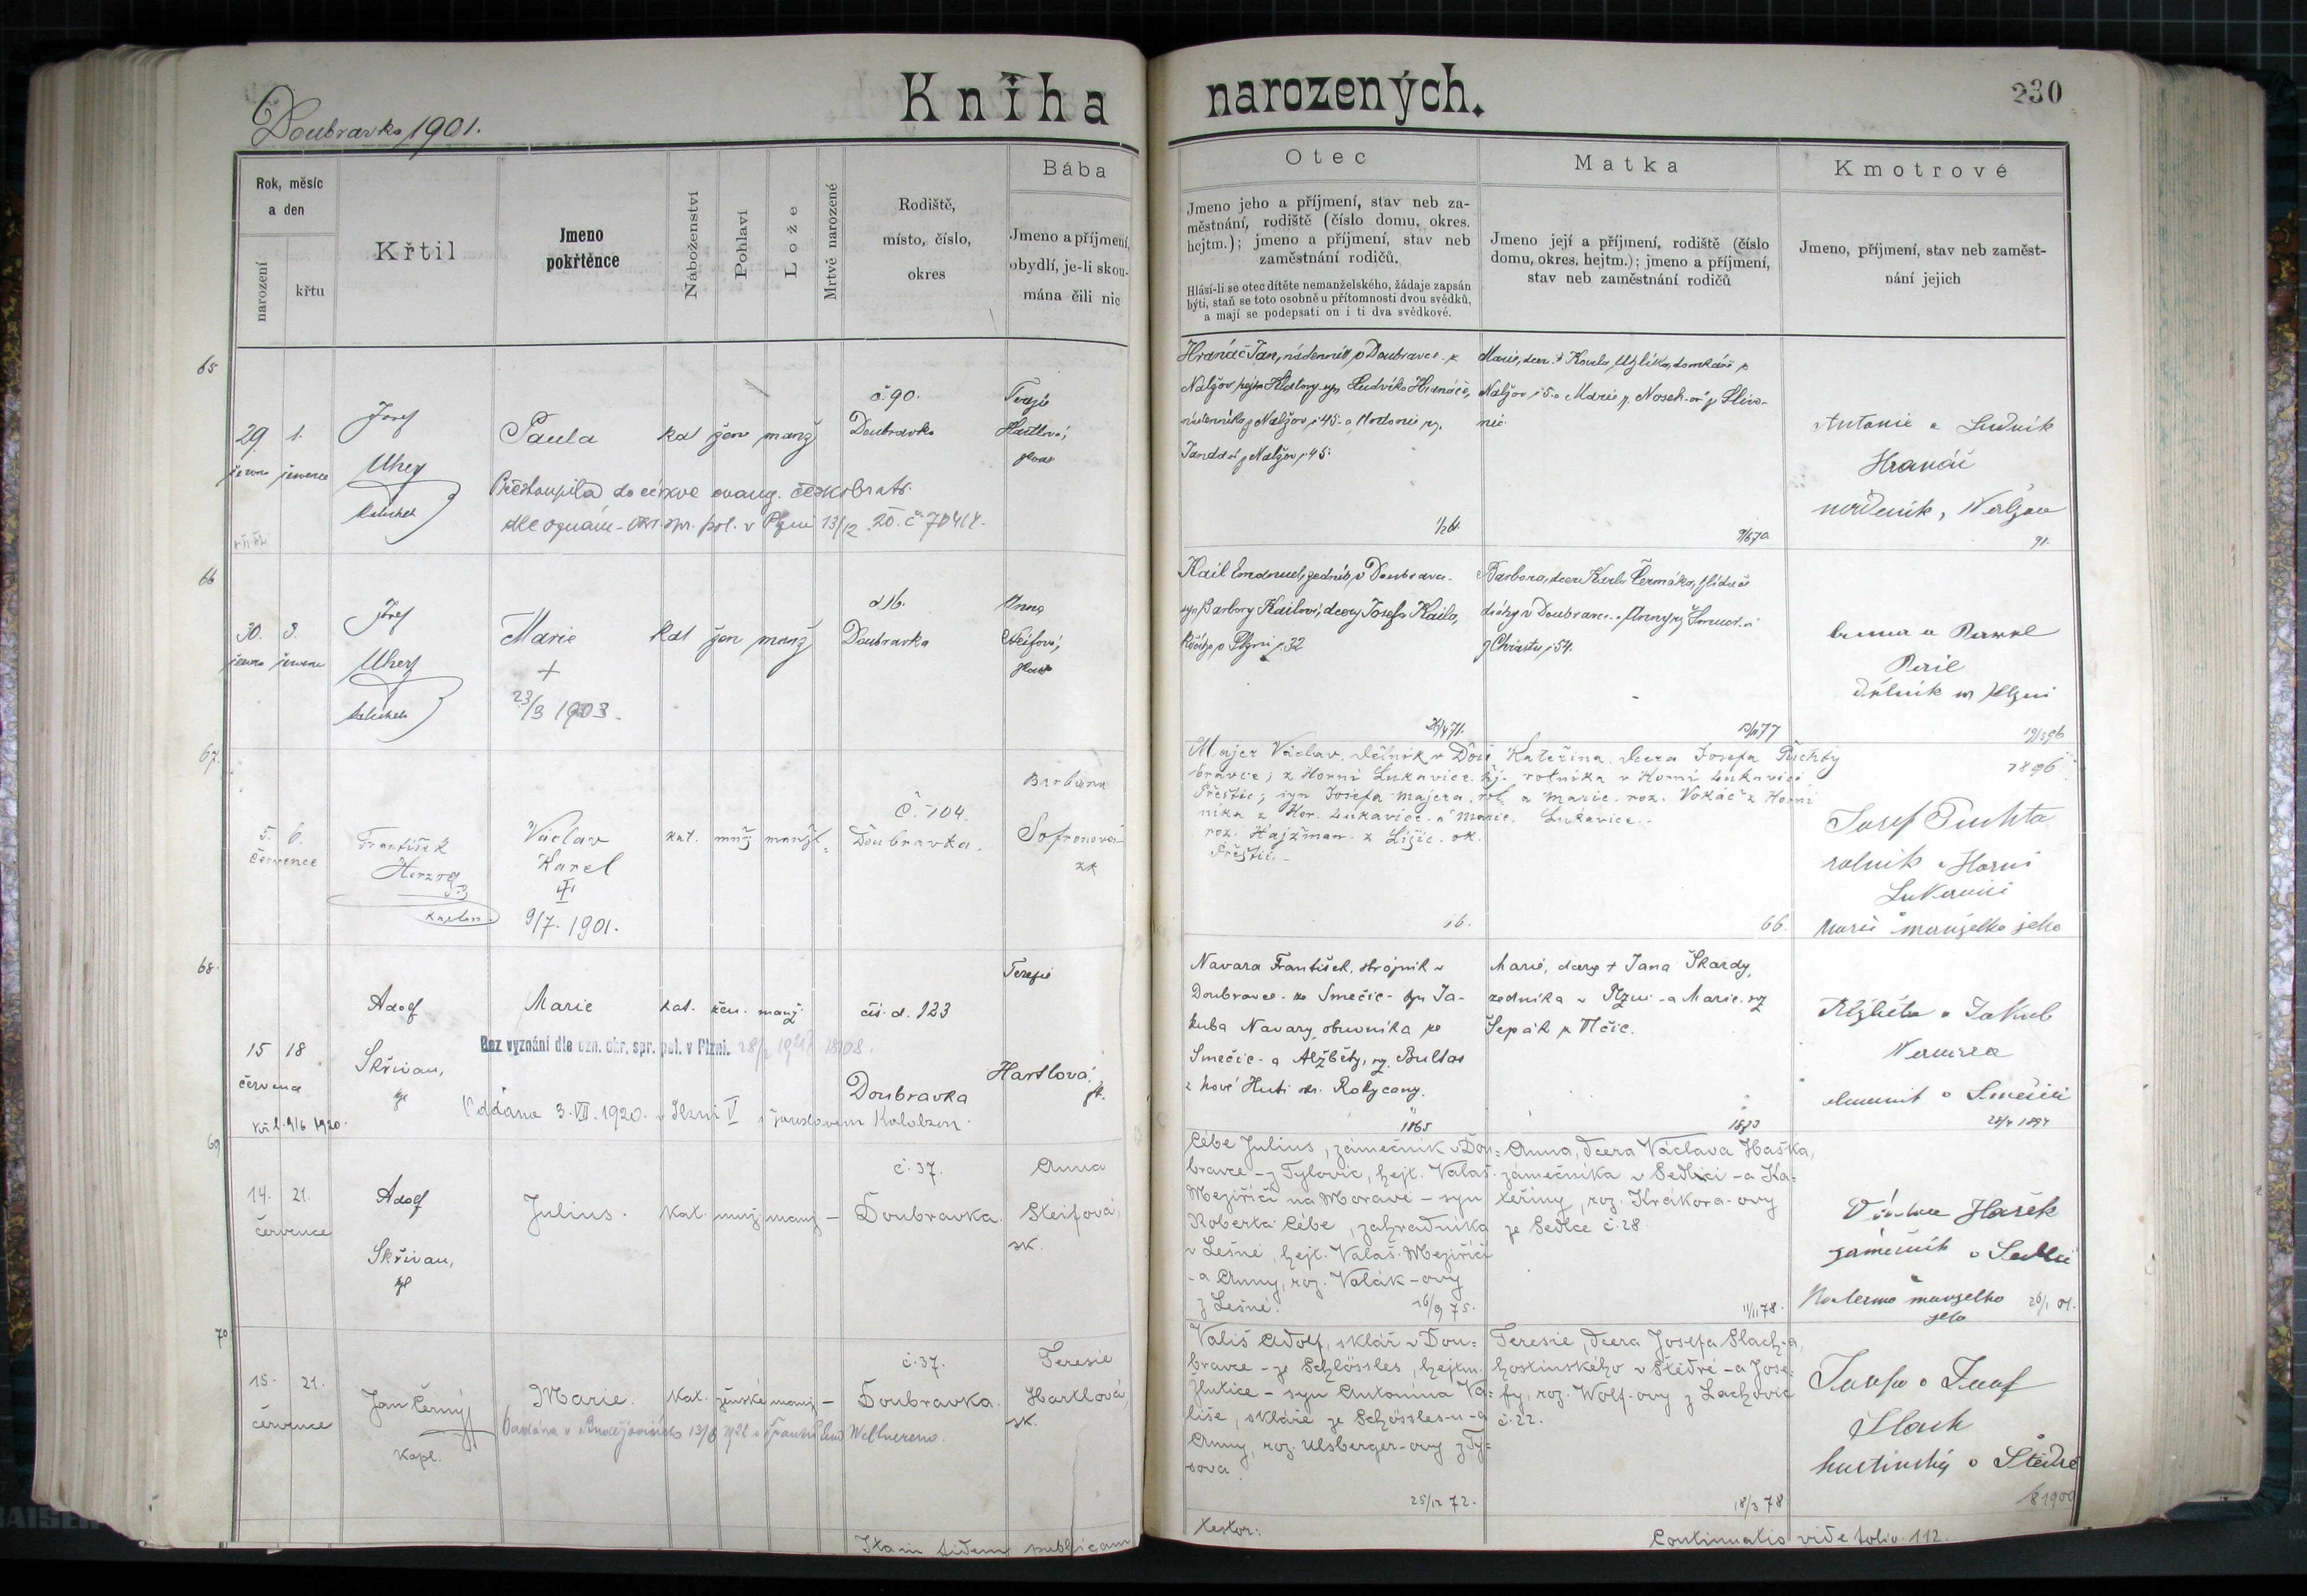 Doubravka 1901.
Kniha narozených.
230
Rok, měsíc
a den
narození
křtu
Křtil
Jmeno
pokřtěnce
Náboženství
Pohlaví
Lože
Mrtvě narozené
Rodiště,
místo, číslo,
okres
Bába
Jmeno a příjmení,
obydlí, je-li skou-
mána čili nic
Otec
Jmeno jeho a příjmení, stav neb za-
městnání, rodiště (číslo domu, okres.
hejtm.); jmeno a příjmení, stav neb
zaměstnání rodičů.
Hlásí-li se otec dítěte nemanželského, žádaje zapsán
býti, staň se toto osobně u přítomnosti dvou svědků,
a mají se podepsati on i ti dva svědkové.
Matka
Jmeno její a příjmení, rodiště (číslo
domu, okres. hejtm.); jmeno a příjmení,
stav neb zaměstnání rodičů
Kmotrové
Jmeno, příjmení, stav neb zaměst-
nání jejich
65
29. 1.
června července
Josef
Uher
Paula
kat žen manž
č. 90.
Doubravka
Terezie
Hartlová,
Přestoupila do církve evang. českobratr.
dle oznám. okr. spr. pol. v Plzni 13/12 20. č. 70414.
Hranáč Jan, nádenník v Doubravce z
Nalžov, hejtm Klatovy syn Ludvíka Hranáče,
nádenníka z Nalžov č 45 a Antonie
z Nalžov č 45
Marie, dcera † Karla Uzlíka, domkáře z
Nalžov č 5 a Marie r. Nosek-ové z Slivo-
nic
Antonie a Ludvík
Hranáč
nádeník, Nalžov
91.
66
30. 3.
června července
Josef
Uher
Marie
+
23/3 1903.
kat žen manž
č 16.
Doubravka
Anna
Steifová,
Kail Emanuel, zedník v Doubravce
syn Barbory Kailové, dcery Josefa Kaila,
v Plzni č 32
Barbora, dcera Karla Čermáka, hlídače
dráhy v Doubravce a Anny
z Chrástu č 54.
Anna a Karel
Kail
dělník v Plzni
67.
5. 6.
července
František
Herzog
kaplan.
Václav
Karel
9/7. 1901.
kat. muž. manž.
Č. 104.
Doubravka.
Barbora
Sofronová
zk
Majer Václav, dělník v Dou
bravce; z Horní Lukavice hj.
Přeštic; syn Josefa Majera, rol
níka z Hor. Lukavice a Marie
roz. Hajžman z Lišic. ok.
Přeštic.
Kateřina, dcera Josefa Puchty
rolníka v Horní Lukavici
a Marie roz. Vokáč z Horní
Lukavice.
66.
1896
Josef Puchta
rolník v Horní
Lukavici
Marie manželka jeho
68.
15 18
července
Adolf
Skřivan,
Marie
kat. žen. manž.
čís. d. 123
Doubravka
Terezie
Hartlová,
zk.
Bez vyznání dle ozn. okr. spr. pol. v Plzni.
Oddána 3. VII. 1920. v Plzni V s Jaroslavem
Navara František, strojník v
Doubravce - ze Smečic - syn Ja-
kuba Navary obuvníka ze
Smečic - a Alžběty, roz. Bultas
z Nové Huti okr. Rokycany.
1865
Marie, dcera † Jana Škardy,
zedníka v Plzni - a Marie. roz
Šepák z Vlčic.
Alžběta a Jakub
Navara
v Smečici
69
14. 21.
července
Adolf
Skřivan,
Julius.
kat. muž. manž. –
č. 37.
Doubravka.
Anna
Steifová,
zk.
Cébe Julius, zámečník v Dou-
bravce – z Tylovic, hejt. Valaš.
Meziříčí na Moravě – syn
Roberta Cébe, zahradníka
v Lešné, hejt. Valaš. Meziříčí
– a Anny, roz. Valák-ovy
z Lešné.
16/9 75.
Anna, dcera Václava Haška,
zámečníka v Sedlci – a Ka-
teřiny, roz. Krákora-ovy
ze Sedlce č. 28
11/11 78.
Václav Hašek
zámečník v Sedlci
Kateřina manželka
jeho
26/1 01.
70
15. 21.
července
Jan Černý
kapl.
Marie.
kat. ženské manž. –
č. 37.
Doubravka.
Teresie
Hartlová,
zk.
Vališ Adolf, sklář v Dou-
bravce – ze Schlössles, hejtm.
Žlutice – syn Antonína Va-
liše, skláře ze Schössles-u – a
Anny, roz. Ulsberger-ovy z Tý-
sova.
25/12 72.
Teresie, dcera Josefa Slach-a,
hostinského v Štědré – a Jose-
fy, roz. Wolf-ovy z Lachovic
č. 22.
18/3 78
Josefa a Josef
Slach
hostinský v Štědré
8 1900
Itam fidem publicam
testor:
Continuatio vide folio. 112.